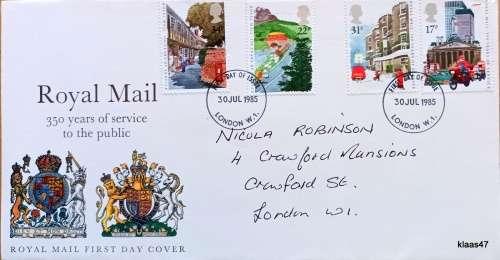 34P
22P
31P
17P
FIRST DAY OF ISSUE
30 JUL 1985
LONDON W.1.
FIRST DAY OF ISSUE
30 JUL 1985
LONDON W.1.
Royal Mail
350 years of service
to the public
DIEU ET MON DROIT
ROYAL MAIL FIRST DAY COVER
NICOLA ROBINSON
4 Crawford Mansions
Crawford St.
London W1.
klaas47